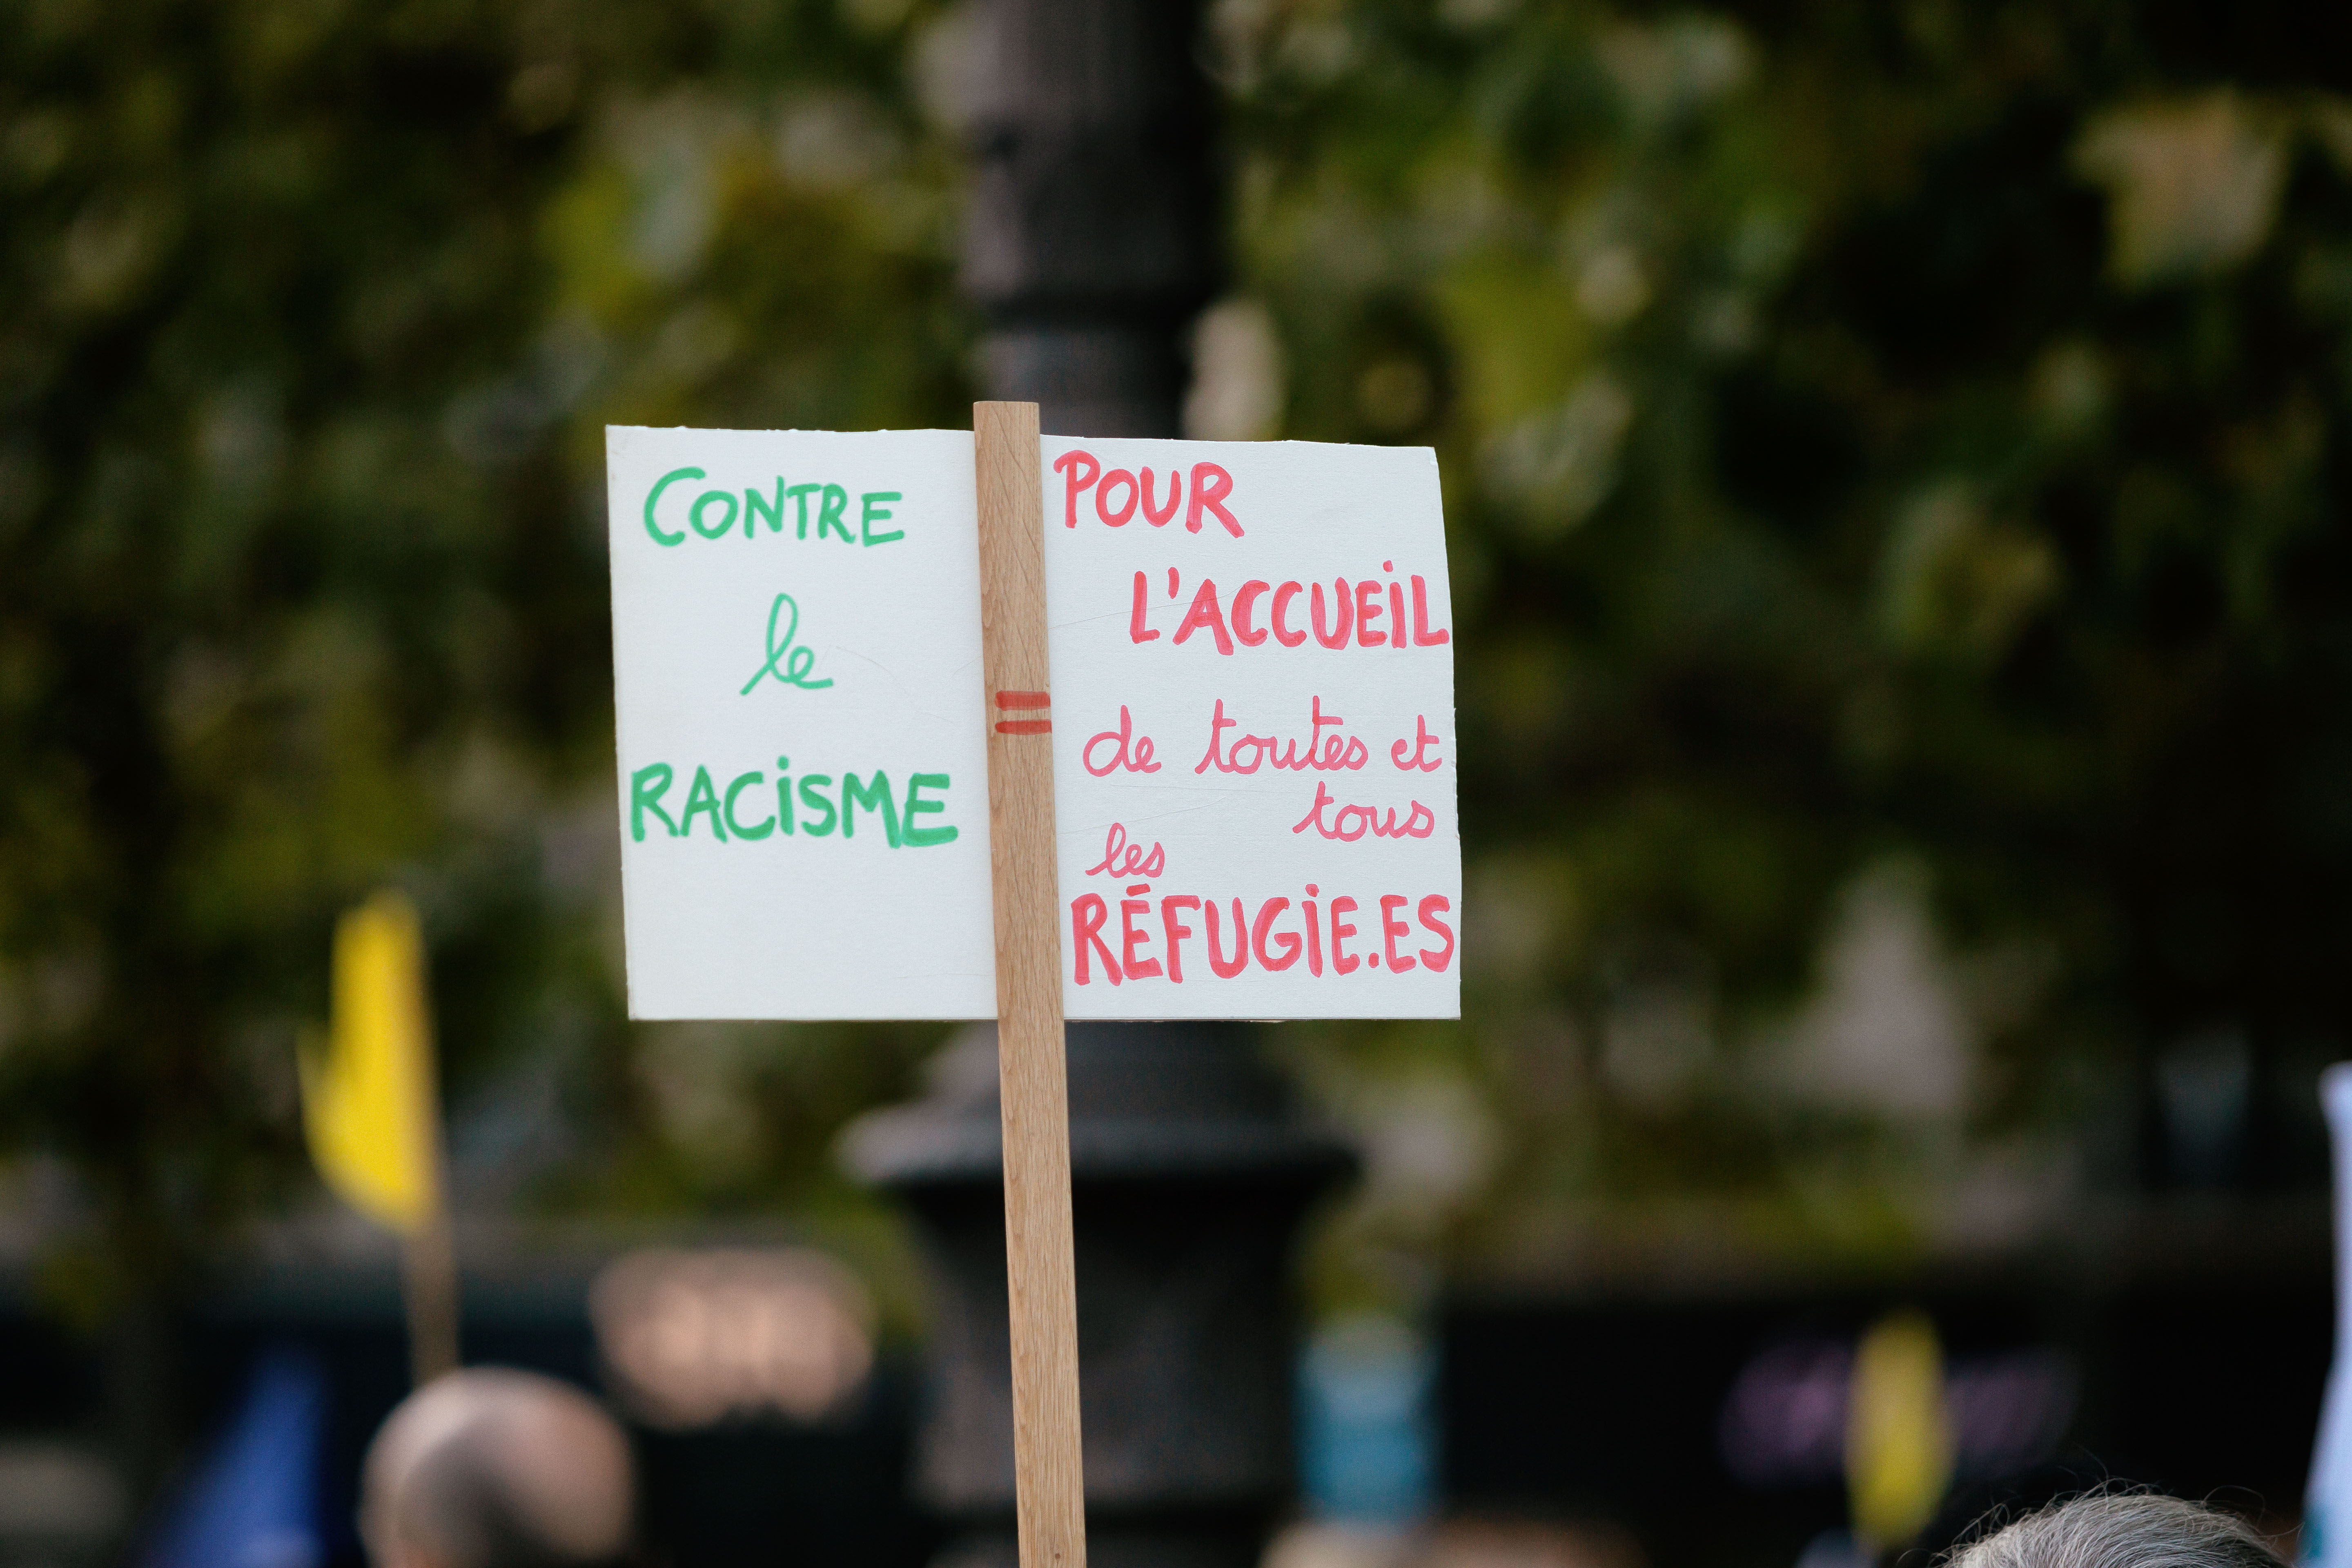 CONTRE
le
RACiSME
=
POUR
L'ACCUEiL
de toutes et
tous
les
RÉFUGiE.ES